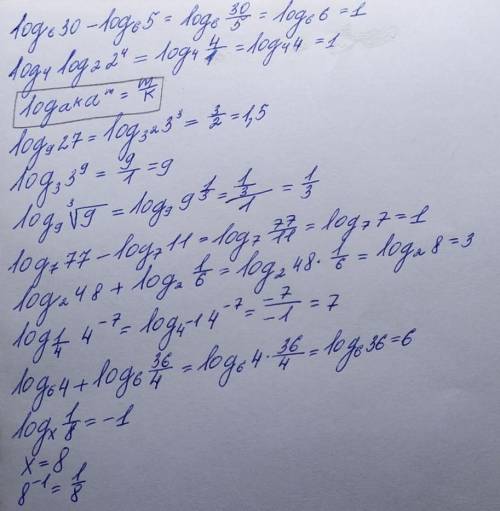 log₆30 − log₆5 = log₆ 30/5 = log₆6 = 1
log₄ log₂ 2⁴ = log₄ 4/1 = log₄4 = 1
log_{aᵏ} aᵐ = m/k
log₉27 = log_{3²} 3³ = 3/2 = 1,5
log₃ 3⁹ = 9/1 = 9
log₉ ∛9 = log₉ 9^{1/3} = (1/3)/1 = 1/3
log₇77 − log₇11 = log₇ 77/11 = log₇7 = 1
log₂48 + log₂ 1/6 = log₂48 · 1/6 = log₂8 = 3
log_{1/4} 4⁻⁷ = log_{4⁻¹} 4⁻⁷ = −7/−1 = 7
log₆4 + log₆ 36/4 = log₆4 · 36/4 = log₆36 = 6
logₓ 1/8 = −1
x = 8
8⁻¹ = 1/8